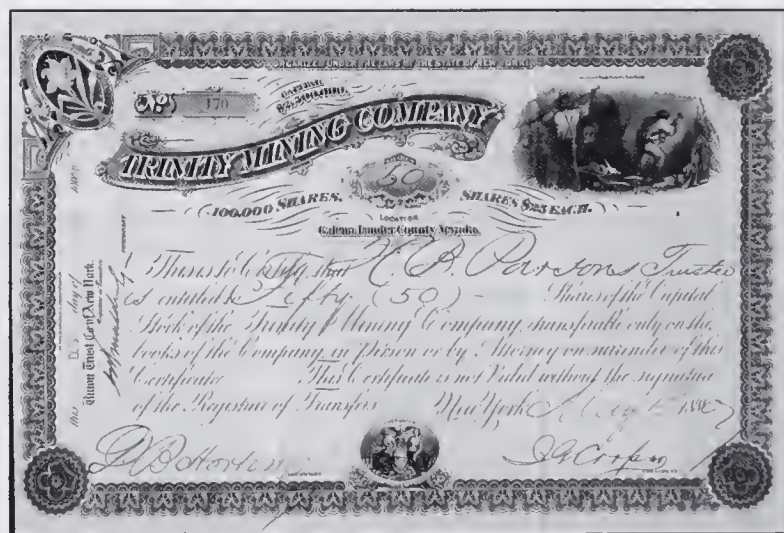 ORGANIZED UNDER THE LAWS OF THE STATE OF NEW YORK
No. 170
CAPITAL
$2,500,000.
TRINITY MINING COMPANY
SHARES
50
100,000 SHARES. SHARES $25 EACH.
LOCATION
Galena, Lander County Nevada.
This is to Certify that H.B. Parsons Trustee
is entitled to Fifty (50) - Shares of the Capital
Stock of the Trinity Mining Company, transferable only on the
books of the Company, in Person or by Attorney on surrender of this
Certificate This Certificate is not Valid without the signature
of the Registrar of Transfers New York
this day of
Union Trust Co. of New York.